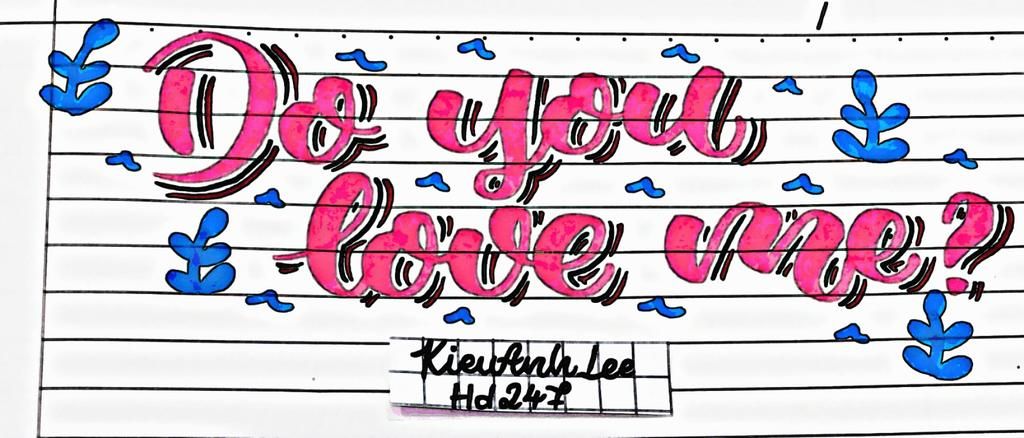 Do you
love me?
KieuAnh Lee
Hd247